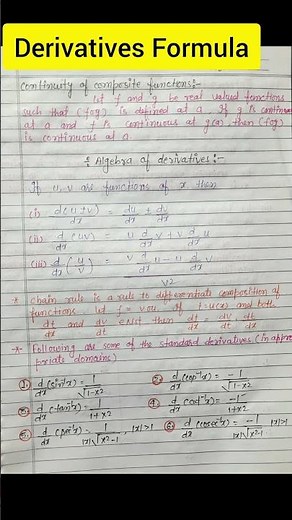 Derivatives Formula
continuity of composite functions:-
Let f and g be real valued functions
such that (fog) is defined at a. If g is continuous
at a and f is continuous at g(a), then (fog)
is continuous at a
Algebra of derivatives:-
If u, v are functions of x then
(i) d(u±v)/dx = du/dx ± dv/dx
(ii) d/dx (uv) = u d/dx v + v d/dx u
(iii) d/dx (u/v) = (v d/dx u - u d/dx v)/v2
* chain rule is a rule to differentiate composition of
functions let f = vou. If t = u(x) and both
dt/dx and dv/dt exist then df/dx = dv/dt . dt/dx
* Following are some of the standard derivatives (in appro
priate domains)
1. d/dx (sin⁻¹x) = 1/√1-x2 2. d/dx (cos⁻¹x) = -1/√1-x2
3. d/dx (tan⁻¹x) = 1/1+x2 4. d/dx (cot⁻¹x) = -1/1+x2
5. d/dx (sec⁻¹x) = 1/|x|√x2-1, |x|>1 6. d/dx (cosec⁻¹x) = -1/|x|√x2-1 |x|>1